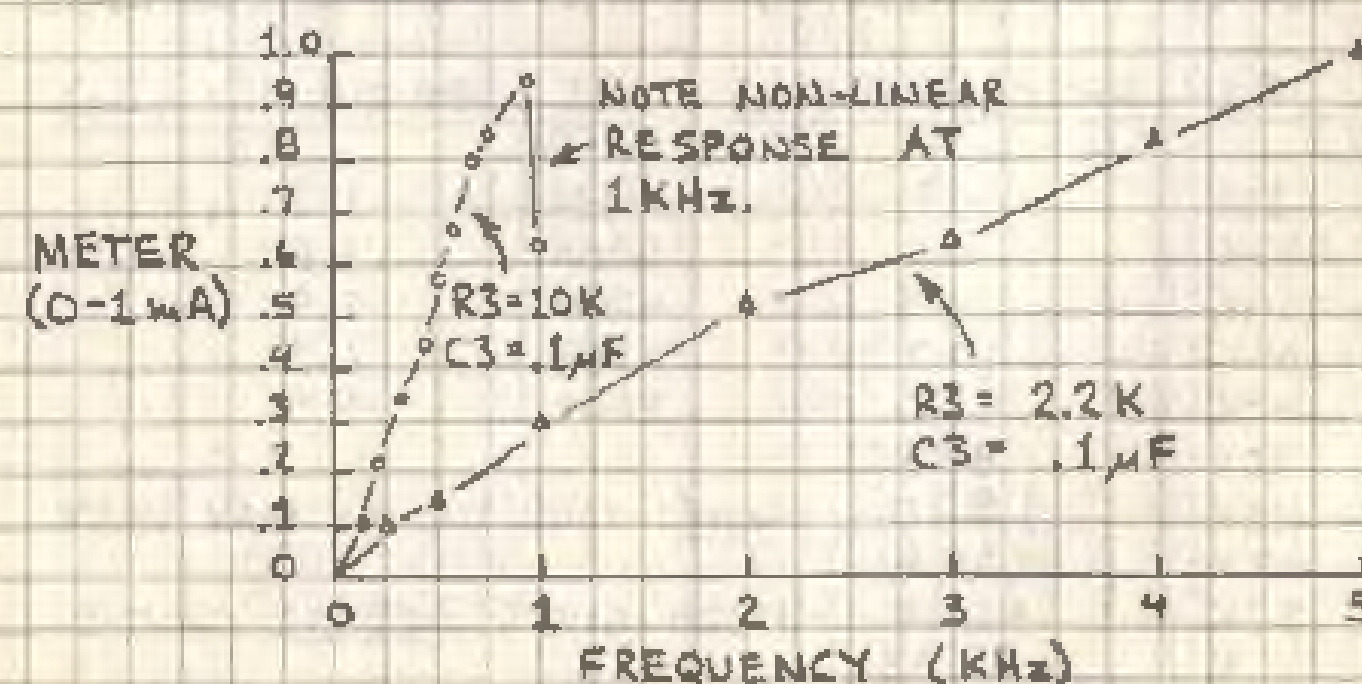 1.0
.9
.8
.7
.6
.5
.4
.3
.2
.1
0
METER
(0-1mA)
NOTE NON-LINEAR
RESPONSE AT
1KHz.
R3=10K
C3=.1µF
R3= 2.2K
C3= .1µF
0 1 2 3 4 5
FREQUENCY (KHz)